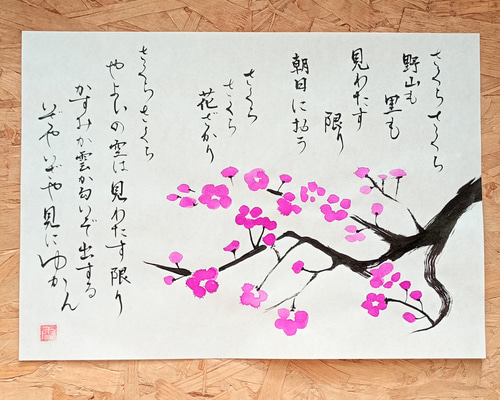 さくら さくら
野山も
里も
見わたす
限り
朝日に匂う
さくら
さくら
花ざかり
さくら さくら
やよいの空は見わたす限り
かすみか雲か匂いぞ出ずる
いざやいざや見にゆかん